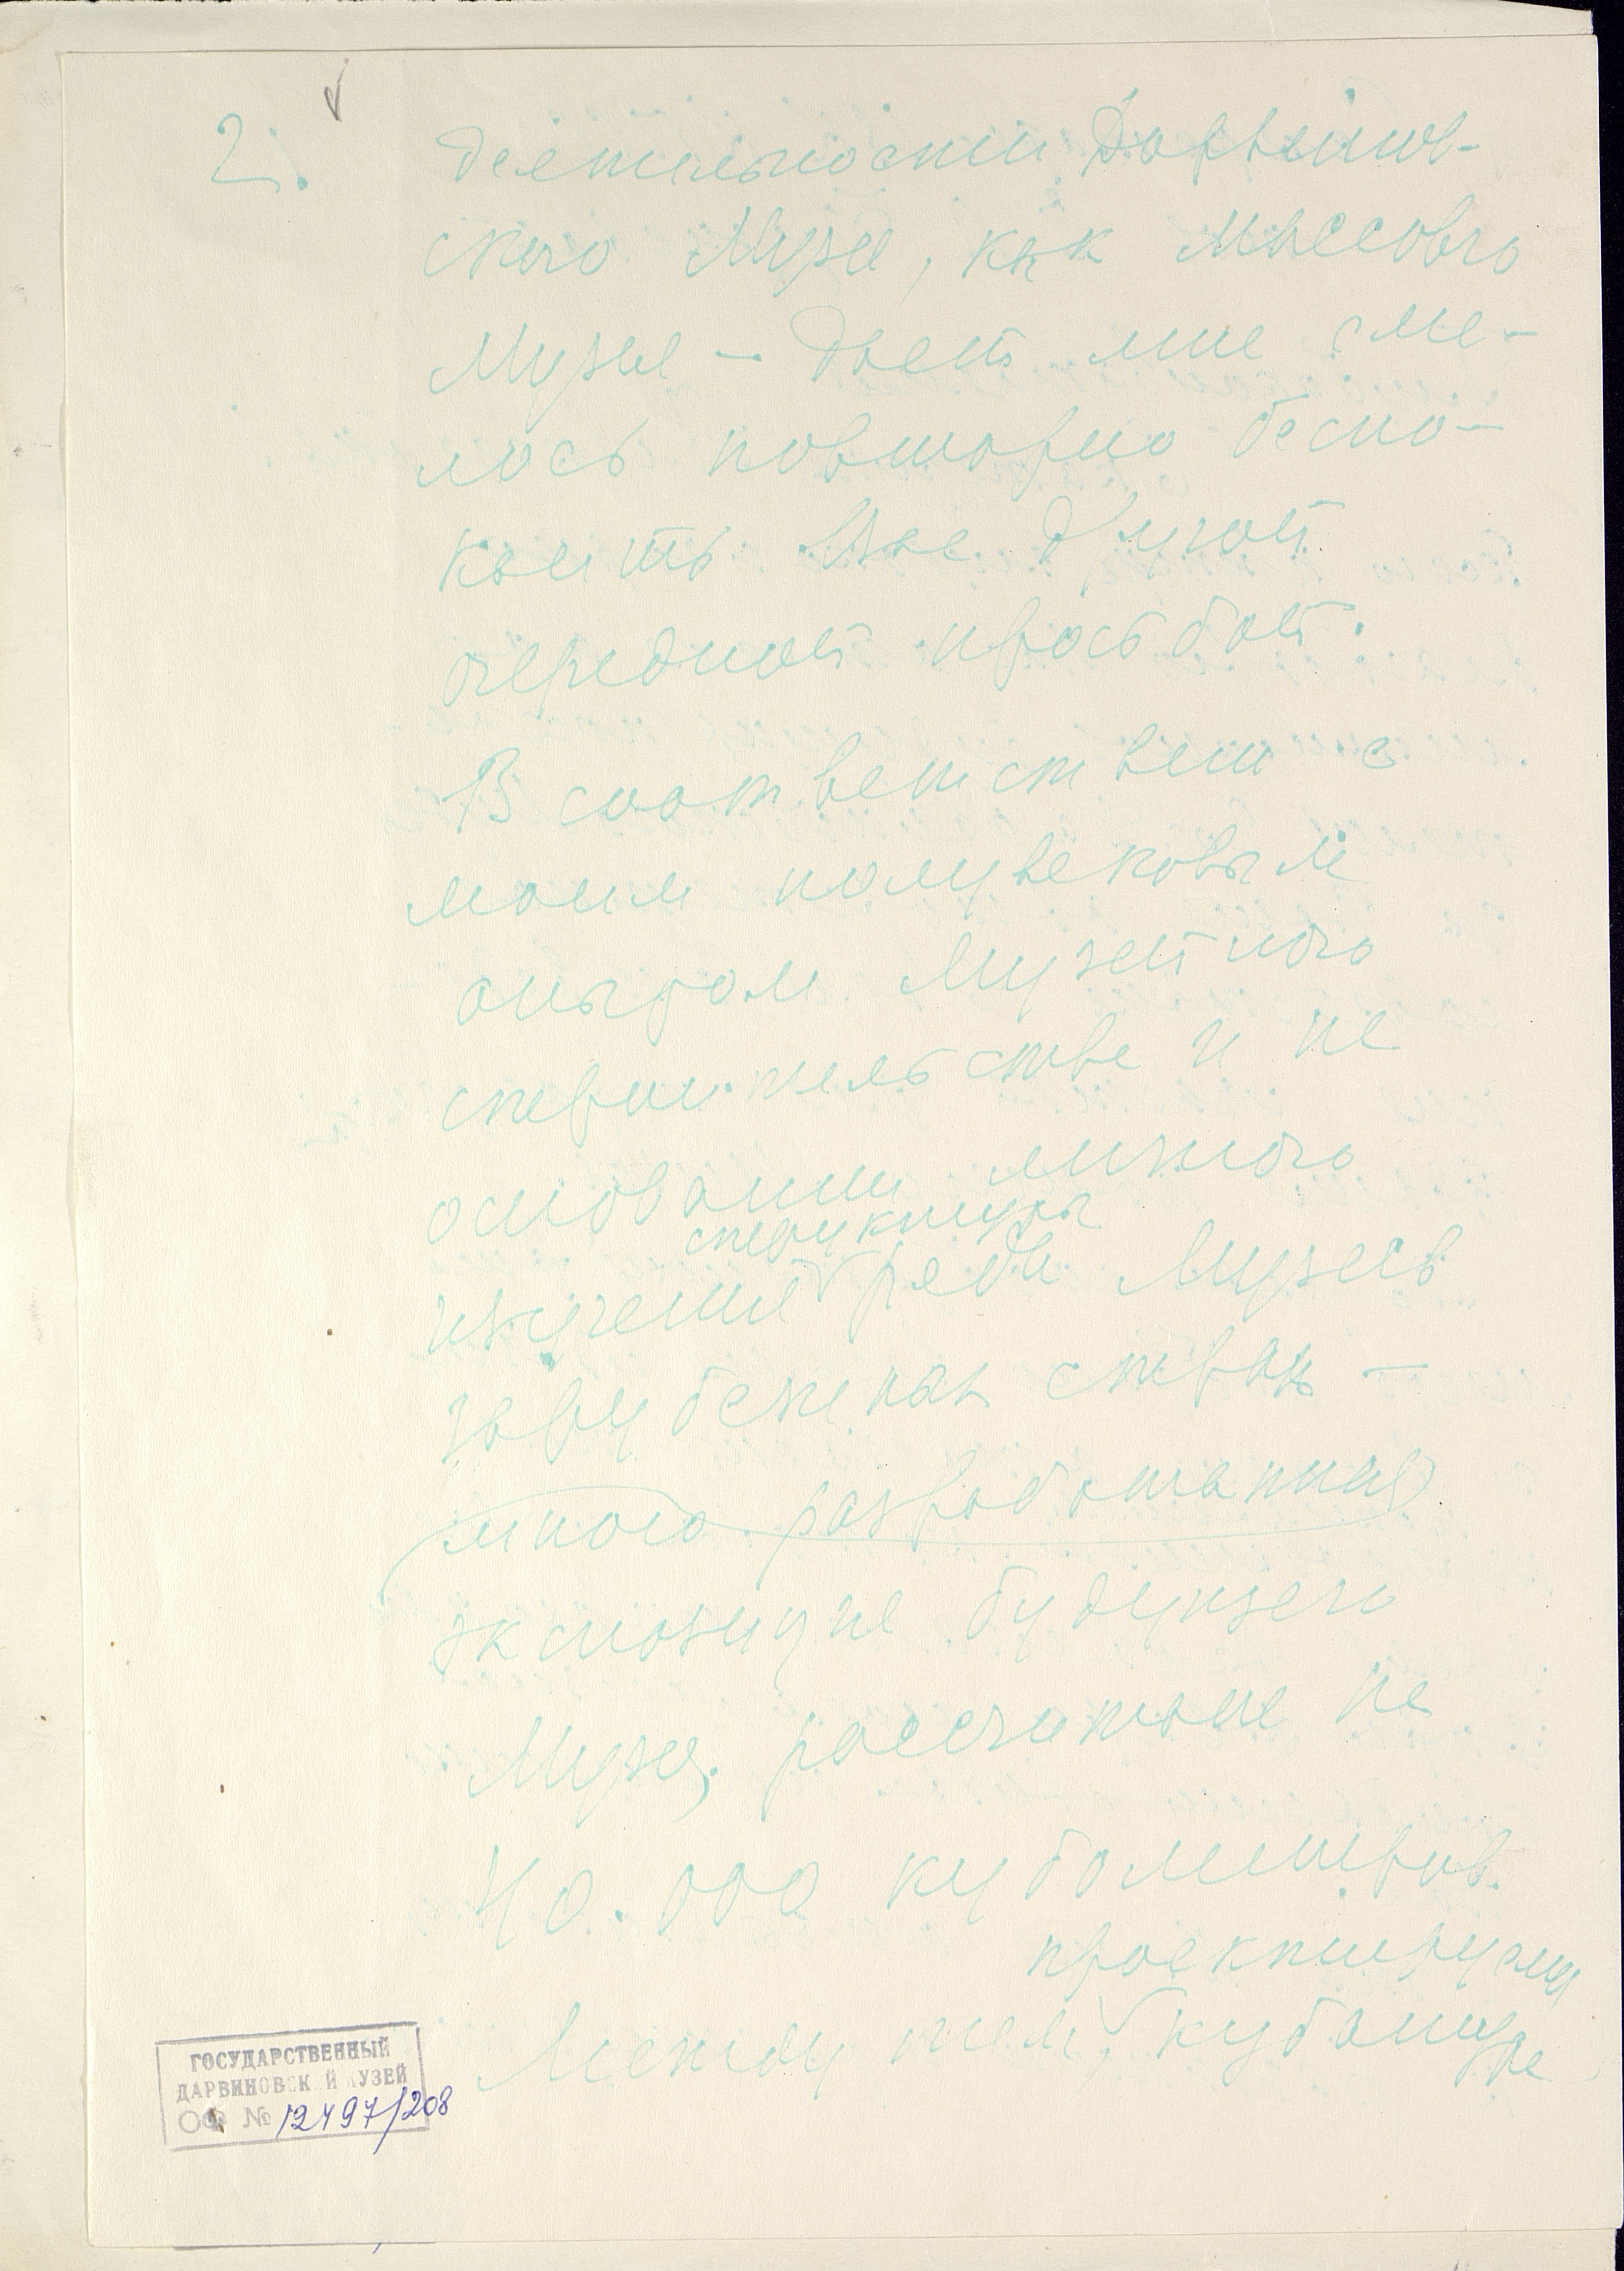 2.
деятельности Дарвинов-
ского Музея, как массового
Музея — дает мне сме-
лость повторно беспо-
коить Вас другой
очередной просьбой.
В соответствии с
моим полувековым
опытом музейного
строительства и на
основании личного
структуры
изучения ряда Музеев
зарубежных стран —
мною разработанная
экспозиция будущего
Музея, рассчитана на
40.000 кубометров.
проектируемая
Между тем, кубатура
ГОСУДАРСТВЕННЫЙ
ДАРВИНОВСКИЙ МУЗЕЙ
ОФ № 12497/208